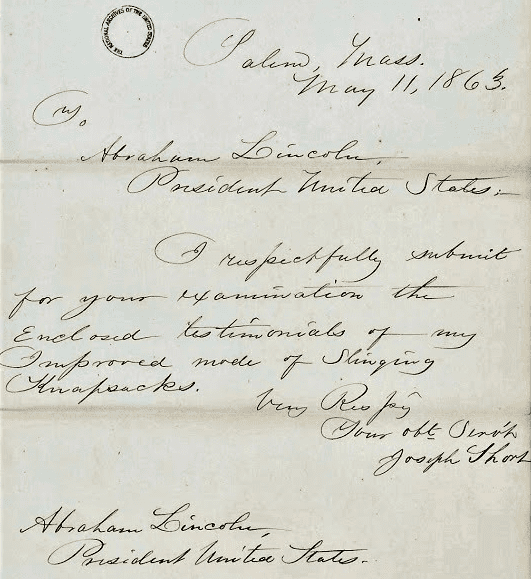 THE NATIONAL ARCHIVES OF THE UNITED STATES
Salem, Mass.
May 11, 1863.
To
Abraham Lincoln,
President United States.
I respectfully submit
for your examination the
Enclosed testimonials of my
Improved mode of Slinging
Knapsacks.
Very Respy
Your obt. Servt
Joseph Short
Abraham Lincoln,
President United States.